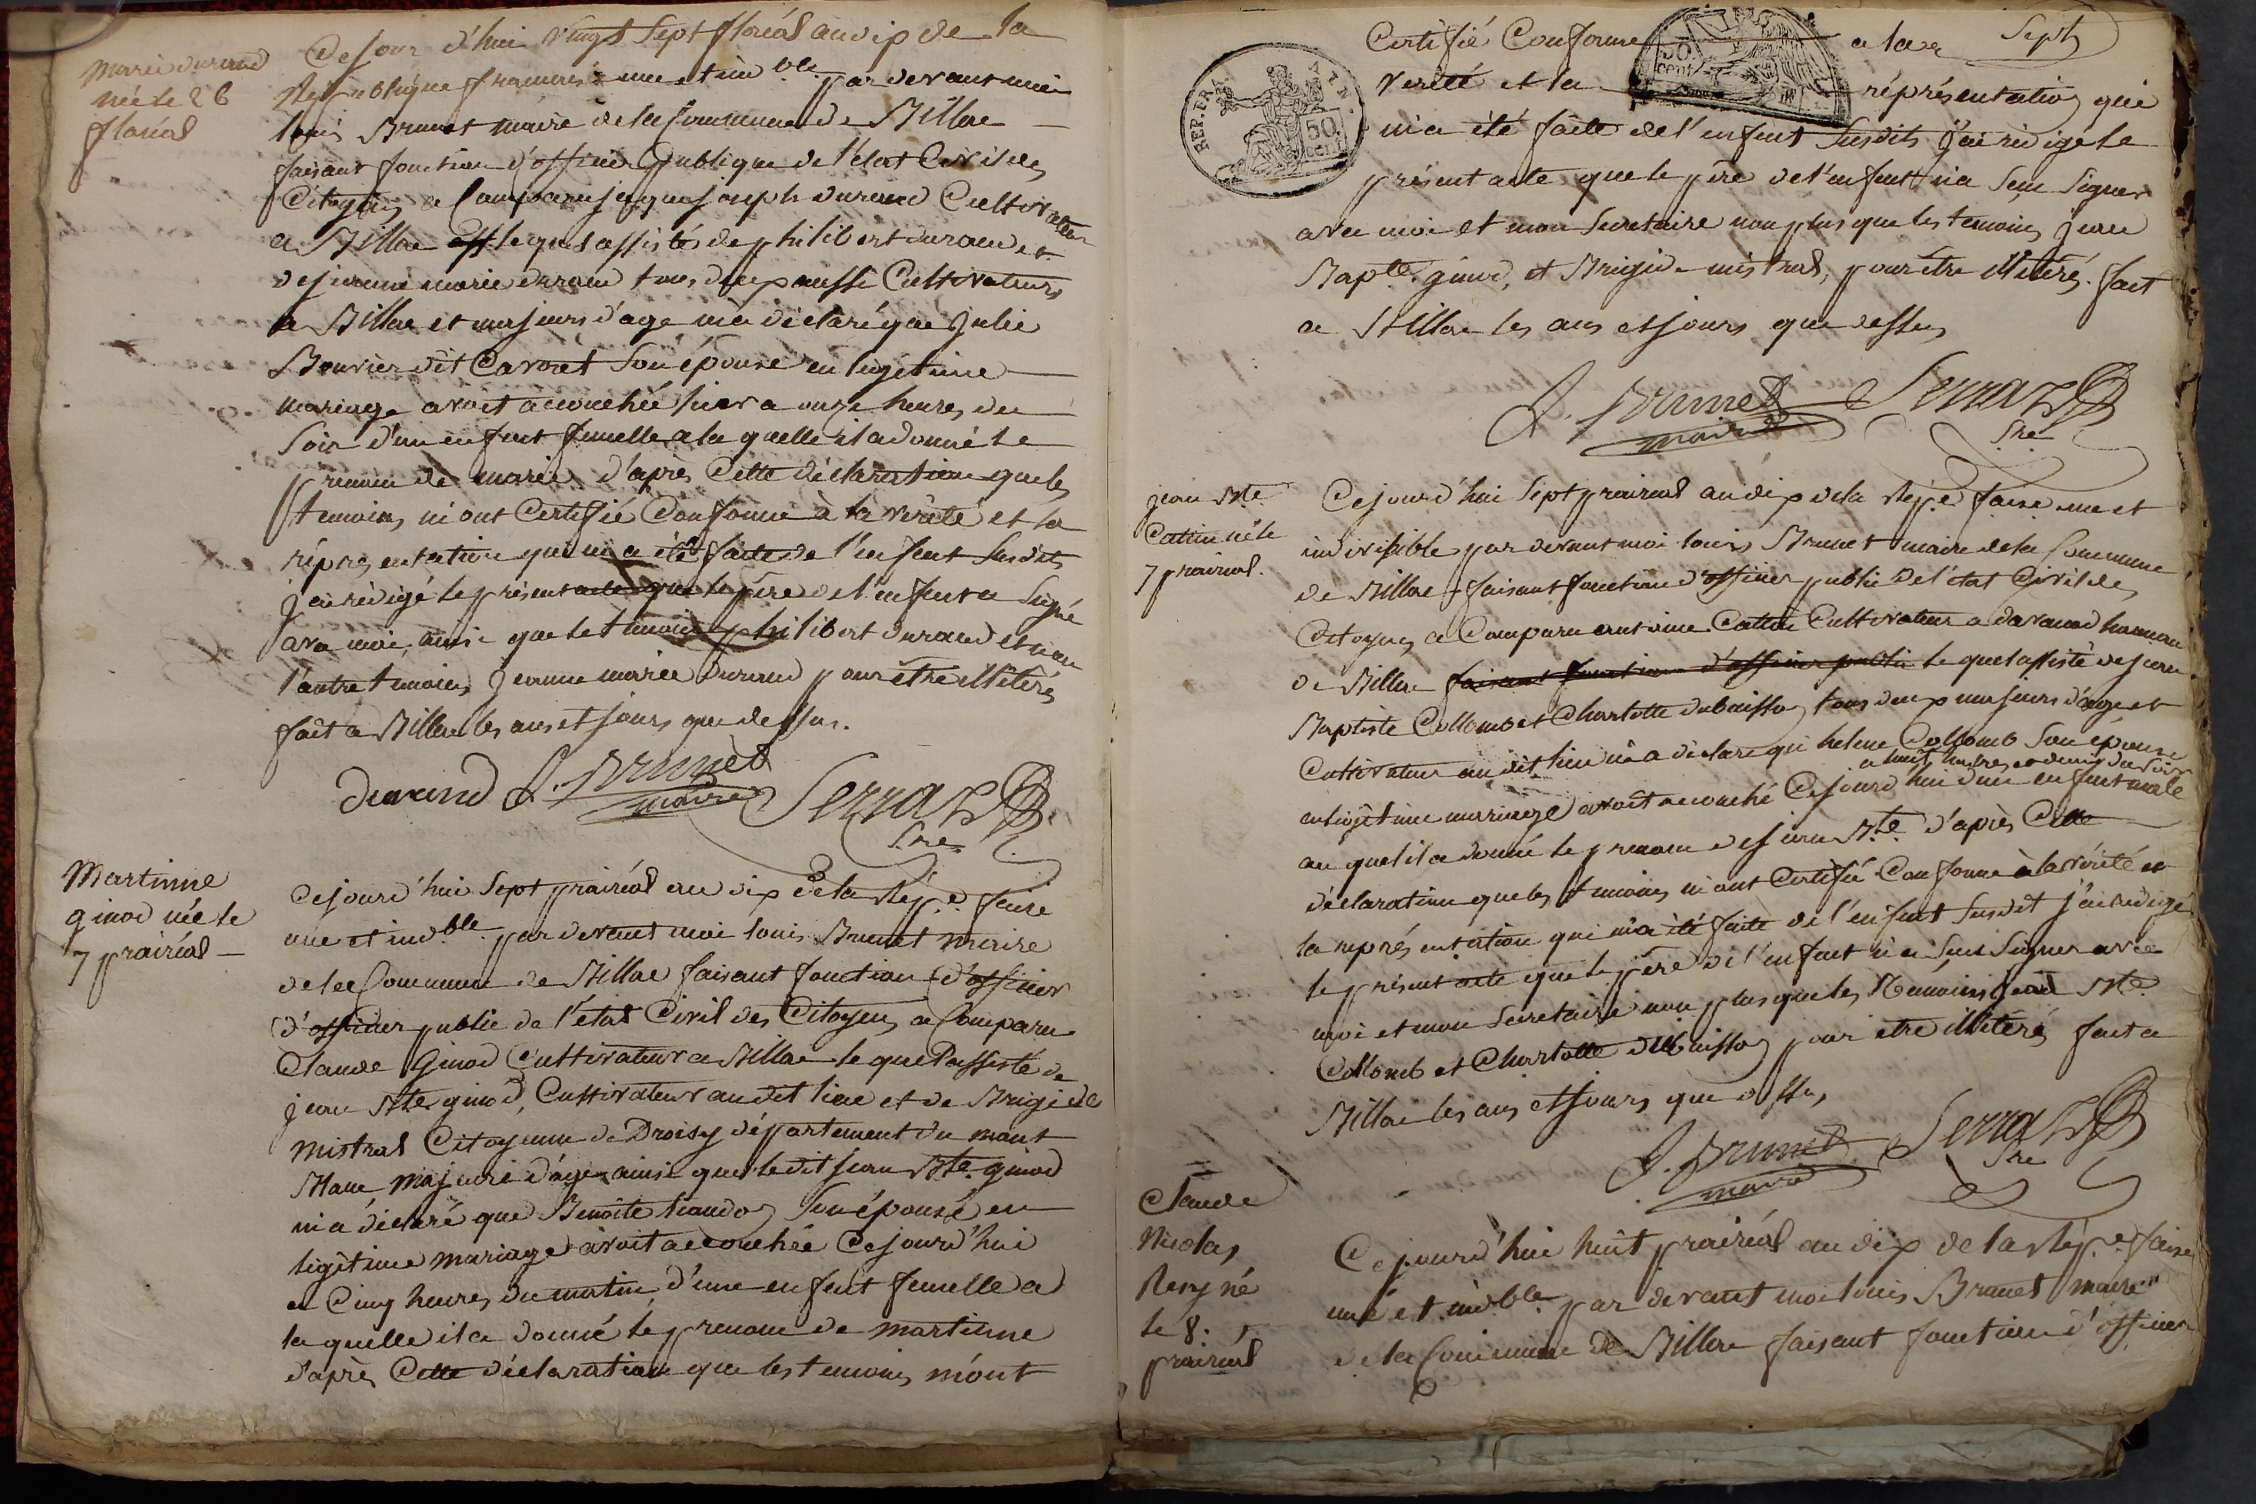 Marie durand
née le 26
floréal
Ce jour d'hui vingt sept floréal an dix de la
République francaise une et ind.ble par devant moi
louis Brunet maire de la Commune de Billae
faisant fonction d'officier publique de l'état Civil des
Citoyens a Comparu jaques joseph durand Cultivateur
a Billae lequel assistés de philibert durand et
de jeanne marie durand tous deux aussi Cultivateurs
a Billae et majeurs d'age m'a déclaré que julie
Bouvier dit Cavoret son épouse en legetime
mariage avoit accouchée hier a onze heures du
soir d'un enfant femelle a la quelle il a donné le
prenom de marie d'après Cette déclaration que les
temoins m'ont Certifié Conforme à la vérité et la
réprésentation qui m'a été faite de l'enfant susdit
j'ai rédigé le présent acte que le père de l'enfant a signé
avec moi, ainsi que le temoin philibert durand et non
l'autre temoin jeanne marie durand pour être illitérés
fait a Billae les ans et jours que dessus.
durand L. Brunet Serraz
maire Sre
Martinne
ginod née le
7 prairéal
Cejourd'hui Sept prairéal an dix de la Rép.e faise
une et ind.ble par devant moi louis Brunet maire
de la Commune de Billae faisant fonction d'officier
d'officier public de l'état Civil des Citoyens a Comparu
Claude Ginod Cultivateur a Billae le quel assisté de
jean Bte ginod, Cultivateur audit lieu et de Brigide
mistral Citoyenne de Droisy département du mont
Blanc majeure d'age ainsi que ledit jean Bte ginod
m'a déclaré que Benoite son épouse en
légitime mariage avoit accouchée Cejourd'hui
a Cinq heures du matin, d'une enfant femelle a
la quelle il a donné le prenom de martinne
d'après Cette déclaration que les temoins m'ont
Certifié Conforme a la Sept
REP. FRA. 50 cent.
50 cent
verité et la réprésentation qui
m'a été faite de l'enfant susdits j'ai rédigé le
présent acte que le père de l'enfant n'a seu signer
avec moi et mon Secretaire non plus que les temoins jean
Bapte ginod, et Brigide mistral, pour être illitéré. fait
a Billae les ans et jours que dessus
L. Brunet Serraz
maire Sre
jean Bte
Cattin né le
7 prairial.
Cejourd'hui Sept prairial an dix de la Rép.e faise une et
indivisible par devant moi louis Brunet maire de la Commune
de Billae faisant fonction d'officier public de l'état Civil des
Citoyens a Comparu antoine Cattin Cultivateur a davanod hameau
de Billae faisant fonction d'officier public le quel assisté de jean
Baptiste Collomb et Charlotte tous deux majeurs d'age et
Cultivateur audit lieu m'a déclaré que helene Collomb son épouse
a huit heures et demi du soir
en légitime marriage avoit accouché Cejourd'hui d'un enfant male
au quel il a donné le prenom de jean Bte d'après Cette
déclaration que les temoins m'ont Certifié Conforme à la vérité et
la représentation qui m'a été faite de l'enfant susdit j'ai rédigé
le présent acte que le père de l'enfant n'a seu signer avec
moi et mon Secretaire non plus que les temoins jean Bte
Collomb et Charlotte pour etre illitéré fait a
Billae les ans et jours que dessus
L. Brunet Serraz
maire Sre
Claude
Nicolas
né
le 8.
prairial
Cejourd'hui huit prairéal an dix de la Rép.e faise
une et ind.ble par devant moi louis Brunet maire
de la Commune de Billae faisant fonction d'officier